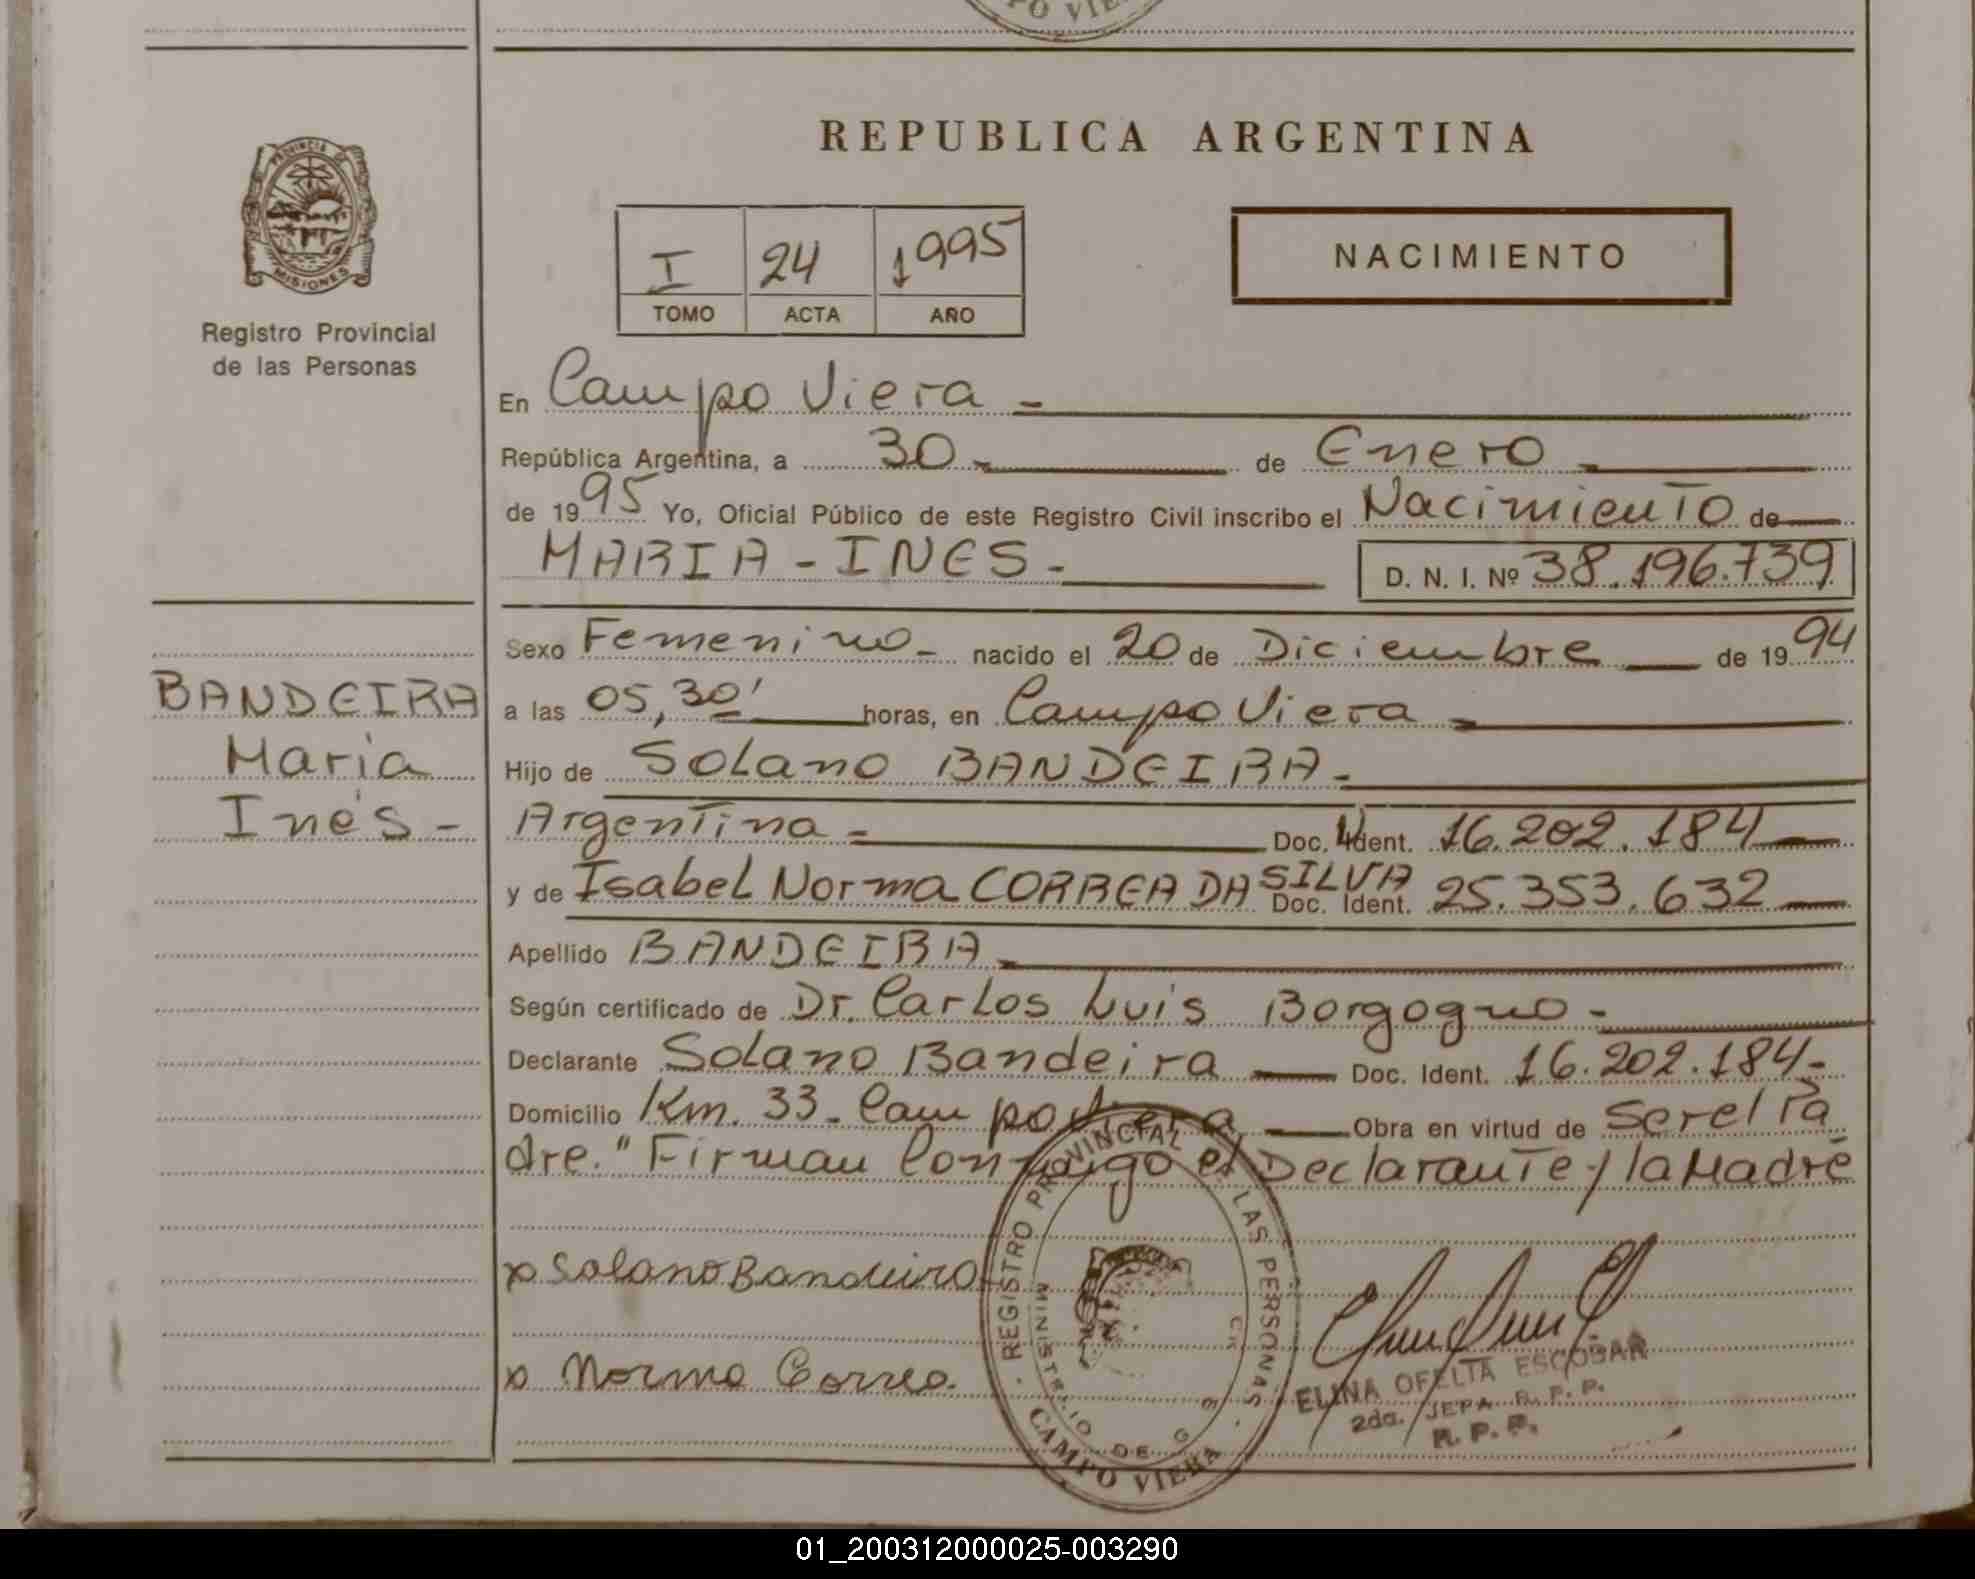 PO VIE
PROVINCIA DE
MISIONES
Registro Provincial
de las Personas
REPUBLICA ARGENTINA
I 24 1995
TOMO ACTA AÑO
NACIMIENTO
En Campo Viera -
República Argentina, a 30 - de Enero
de 1995 Yo, Oficial Público de este Registro Civil inscribo el Nacimiento de
MARIA - INES - D. N. I. Nº 38.196.739
Sexo Femenino - nacido el 20 de Diciembre de 1994
a las 05,30' horas, en Campo Viera -
Hijo de Solano BANDEIRA -
Argentina - Doc. Ident. 16.202.184
y de Isabel Norma CORREA DA SILVA Doc. Ident. 25.353.632
Apellido BANDEIRA
Según certificado de Dr. Carlos Luis Borgogno -
Declarante Solano Bandeira Doc. Ident. 16.202.184-
Domicilio Km. 33- Campo Viera Obra en virtud de Ser el Pa
dre." Firman Conmigo el Declarante y la Madre
BANDEIRA
María
Inés -
x Solano Bandeira
x Norma Correa.
REGISTRO PROVINCIAL LAS PERSONAS
MINISTERIO DE G
CAMPO VIERA
ELINA OFELIA ESCOBAR
2da. JEFA R. P. P.
R. P. P.
01_200312000025-003290